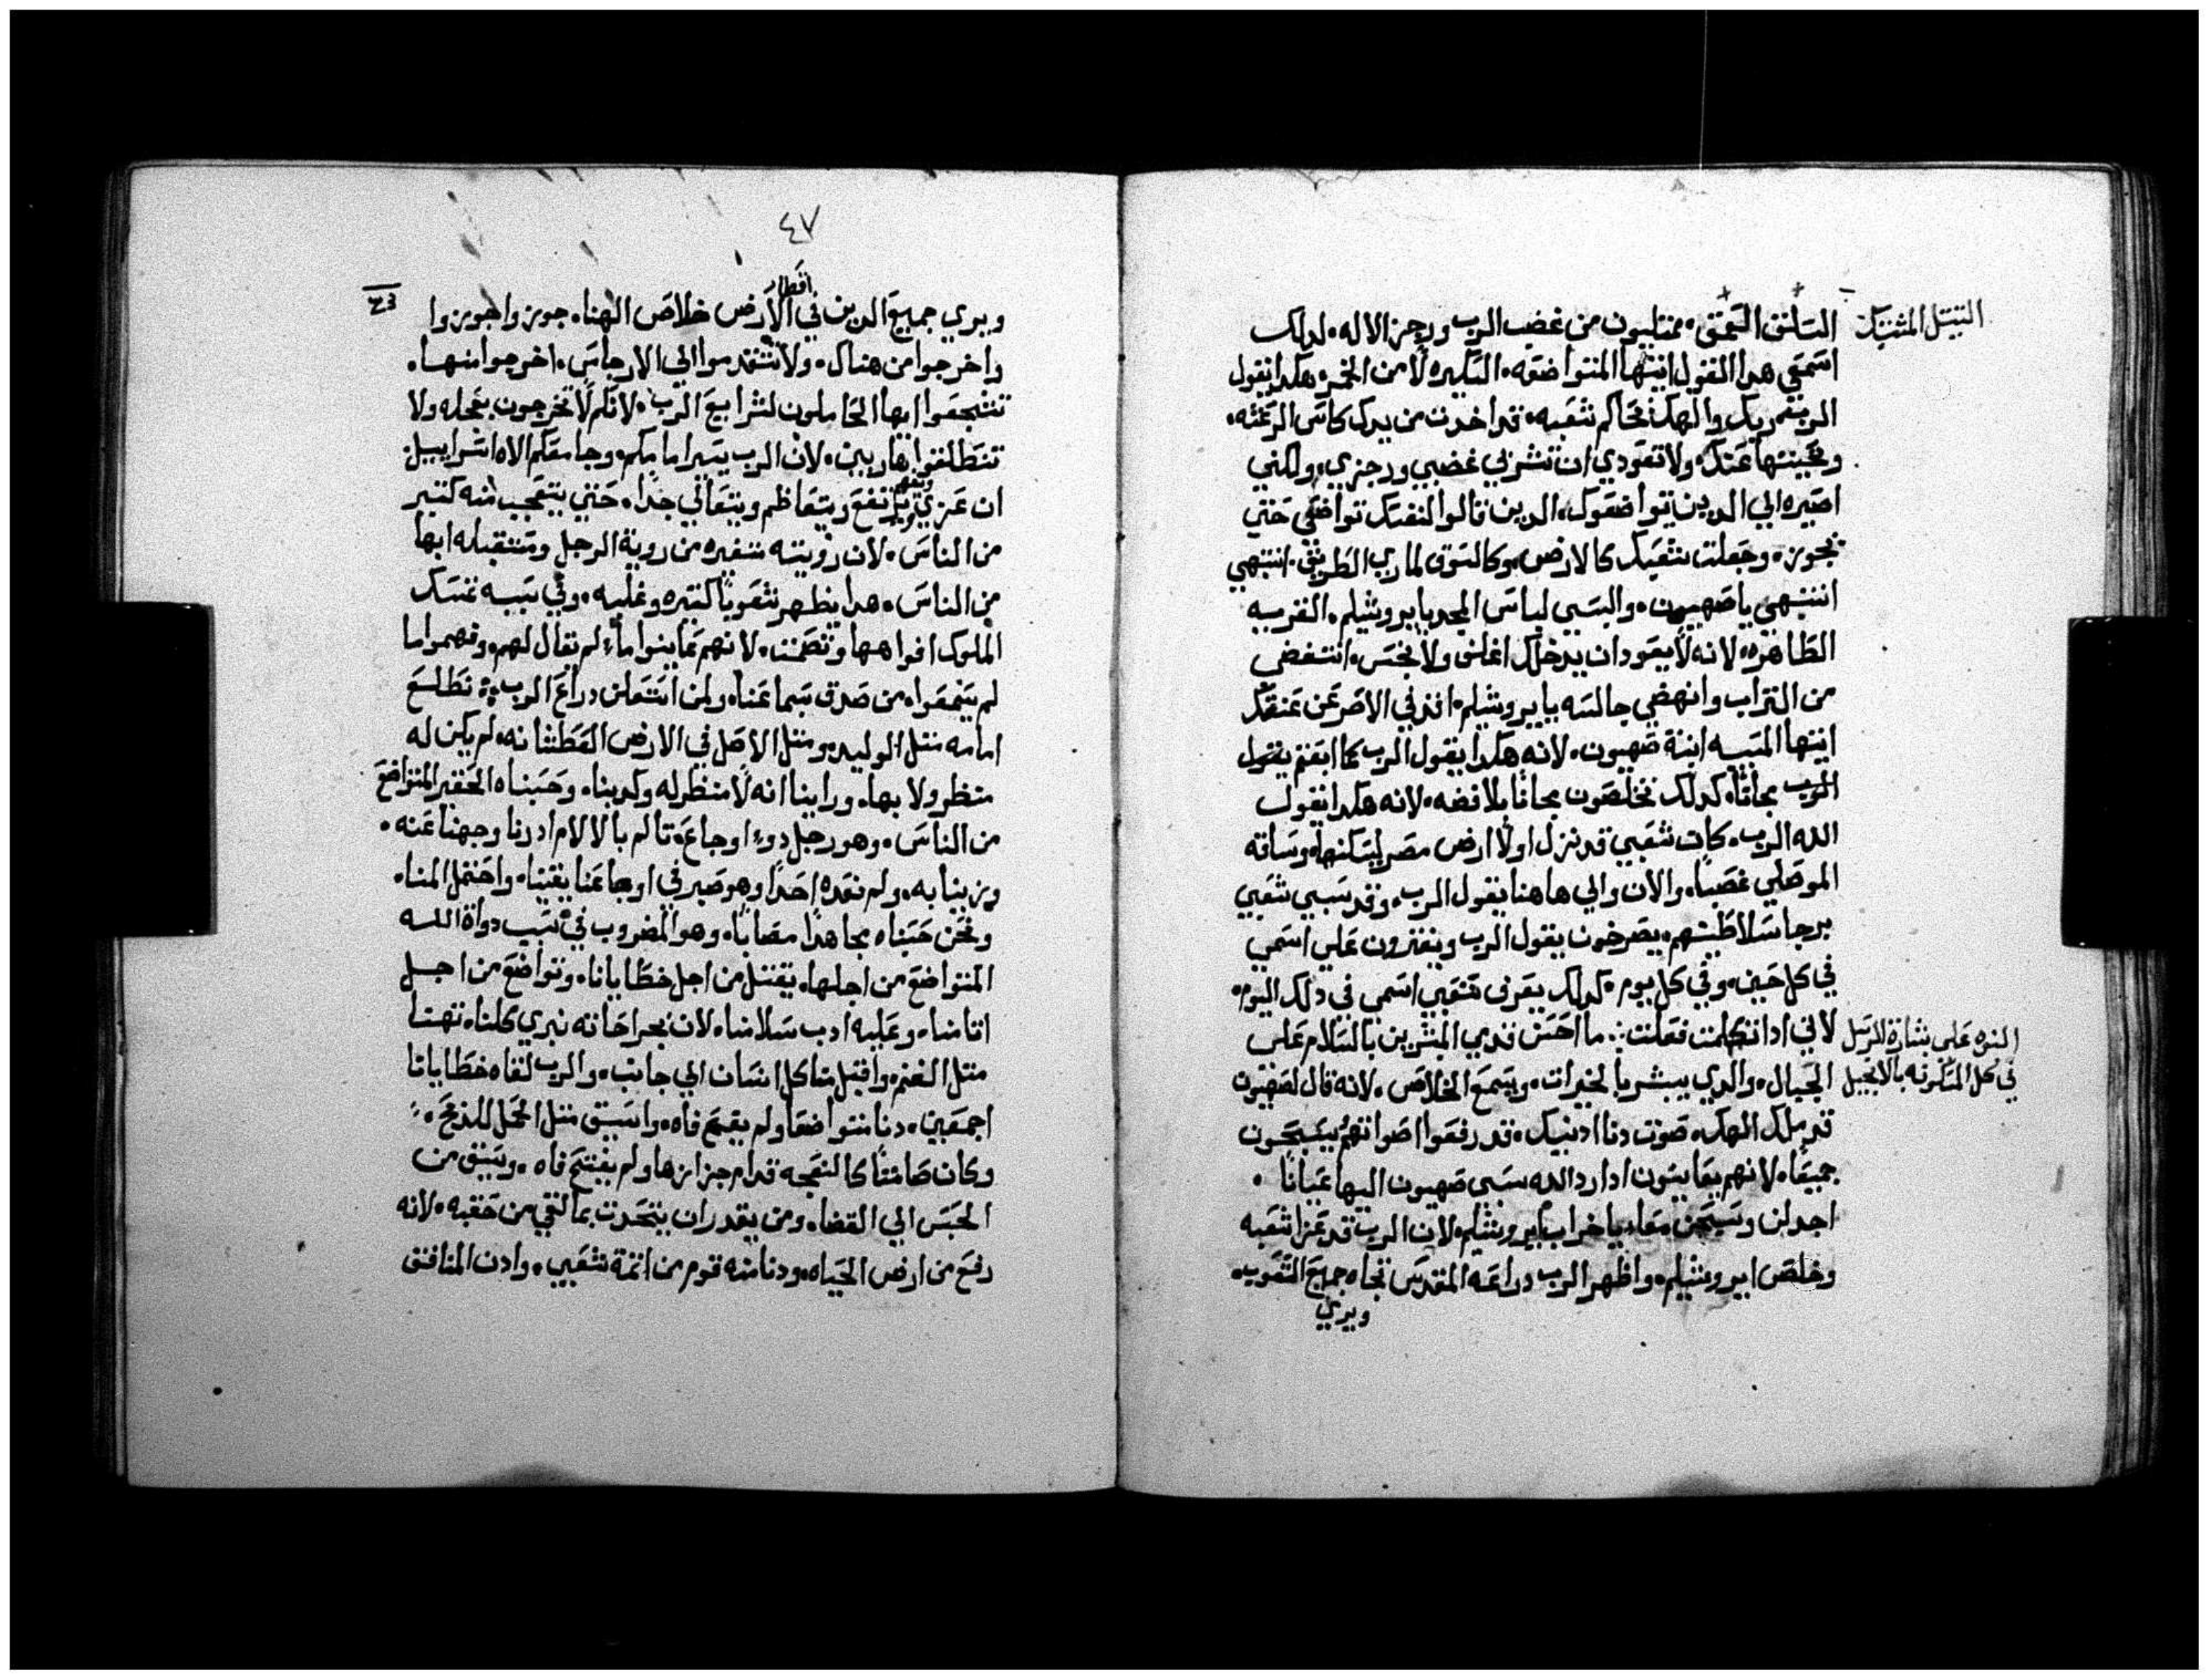 السلق العمق، ممتليون من غضب الرب ورجز الاله، لدلك
السبل المشتبك
اسمعي هدا القول ايتها المتواضعه، السكيره لا من الخمر، هكدا يقول
الرب ربك والهك تحاكم شعبه، قد اخدت من يدك كاس الرعشه،
عنك، ولا تعودي ان تشربي غضبي ورجزي، ولكني
اصيره الي الدين تواضعوك، الدين قالوا لنفسك تواضعي حتي
نجوز، وجعلت كالارض، وكالسوق لماري الطريق. انتبهي
انتبهي ياصهيون، والبسي لباس المجد يايروشليم، القريه
الطاهره، لانه لا يعود ان يدخلك اغلف ولا نجس، انتفضي
من التراب وانهضي جالسه يايروشليم، عن عنقك
ايتها المسبيه ابنة صهيون، لانه هكدا يقول الرب كما ابعتم يقول
الرب مجاناً، كدلك تخلصون مجاناً بلا فضه، لانه هكدا يقول
الله الرب، كان شعبي قد نزل اولاً ارض مصر ليسكنها، وساقه
الموصلي غصباً، والان والي هاهنا يقول الرب، وقد سبي شعبي
سلاطينهم، يصرخون يقول الرب ويفترون علي اسمي
في كل حين، وفي كل يوم، كدلك يعرف شعبي اسمي في دلك اليوم،
لاني ادا تكلمت فعلت: ما احسن قدمي المبشرين بالسلام علي
النبوه علي بشارة الرسل
الجبال، والدي يبشر بالخيرات، ويسمع الخلاص، لانه قال لصهيون
في كل المسكونه بالانجيل
قد ملك الهك، صوت دنا ادنيك، قد رفعوا اصواتهم يسبحون
جميعاً، لانهم يعاينون ادا رد الله سبي صهيون اليها عياناً،
اجدلن وسبحن معاً، ياخراب ايروشليم، لان الرب قد عزا شعبه
وخلص ايروشليم، واظهر الرب دراعه المقدس تجاه جميع الشعوب،
ويري
٤٧
اقطار
ويري جميع الدين في الارض خلاص الهنا، جوزوا اجوزوا
واخرجوا من هناك، ولا تتقدموا الي الارجاس، اخرجوا منها،
تشجعوا ايها الحاملون لشرايع الرب، لانكم لا تخرجون بعجله ولا
تنطلقوا هاربين، لان الرب يسير امامكم، وجامعكم الاه اسراييل
ان عزي يرتفع ويتعاظم ويتعالي جداً، حتي يتعجب منه كتير
من الناس، لان رويته متغيره من روية الرجل ومستقبله ابها
من الناس، هدا يظهر شعوباً كتيره وغلبه، وفي سببه تمسك
الملوك افواهها وتصمت، لانهم عاينوا ما لم تقال لهم، وفهموا ما
لم يسمعوا، من صدق سماعنا، ولمن استعلن دراع الرب: نطلع
امامه متل الوليد، ومتل الاصل في الارض العطشانه، لم يكن له
منظر ولا بها، وراينا انه لا منظر له وكدبنا، وحسبناه الحقير المتواضع
من الناس، وهو رجل دو اوجاع، تالم بالالام ادرنا وجهنا عنه،
وزرينا به، ولم نعده احداً وهو صبر في اوجاعنا يقيناً، واحتمل المنا،
ونحن حسبناه مجاهداً مصاباً، وهو المضروب في سبب دواة الله
المتواضع من اجلها، يقتل من اجل خطايانا، وتواضع من اجل
اتامنا، وعليه ادب سلامنا، لان بجراحاته نبري كلنا، تهنا
متل الغنم، واقبل منا كل انسان الي جانب، والرب لقاه خطايانا
اجمعين، دنا متواضعاً ولم يفتح فاه، واستيق متل الحمل للدبح،
وكان صامتاً كالنعجه قدام جزازها ولم يفتح فاه، وسيق من
الحبس الي القضا، ومن يقدر ان يتحدث بما لقي من حقبه، لانه
رفع من ارض الحياه، ودنا منه قوم من اتمة شعبي، وادن المنافق